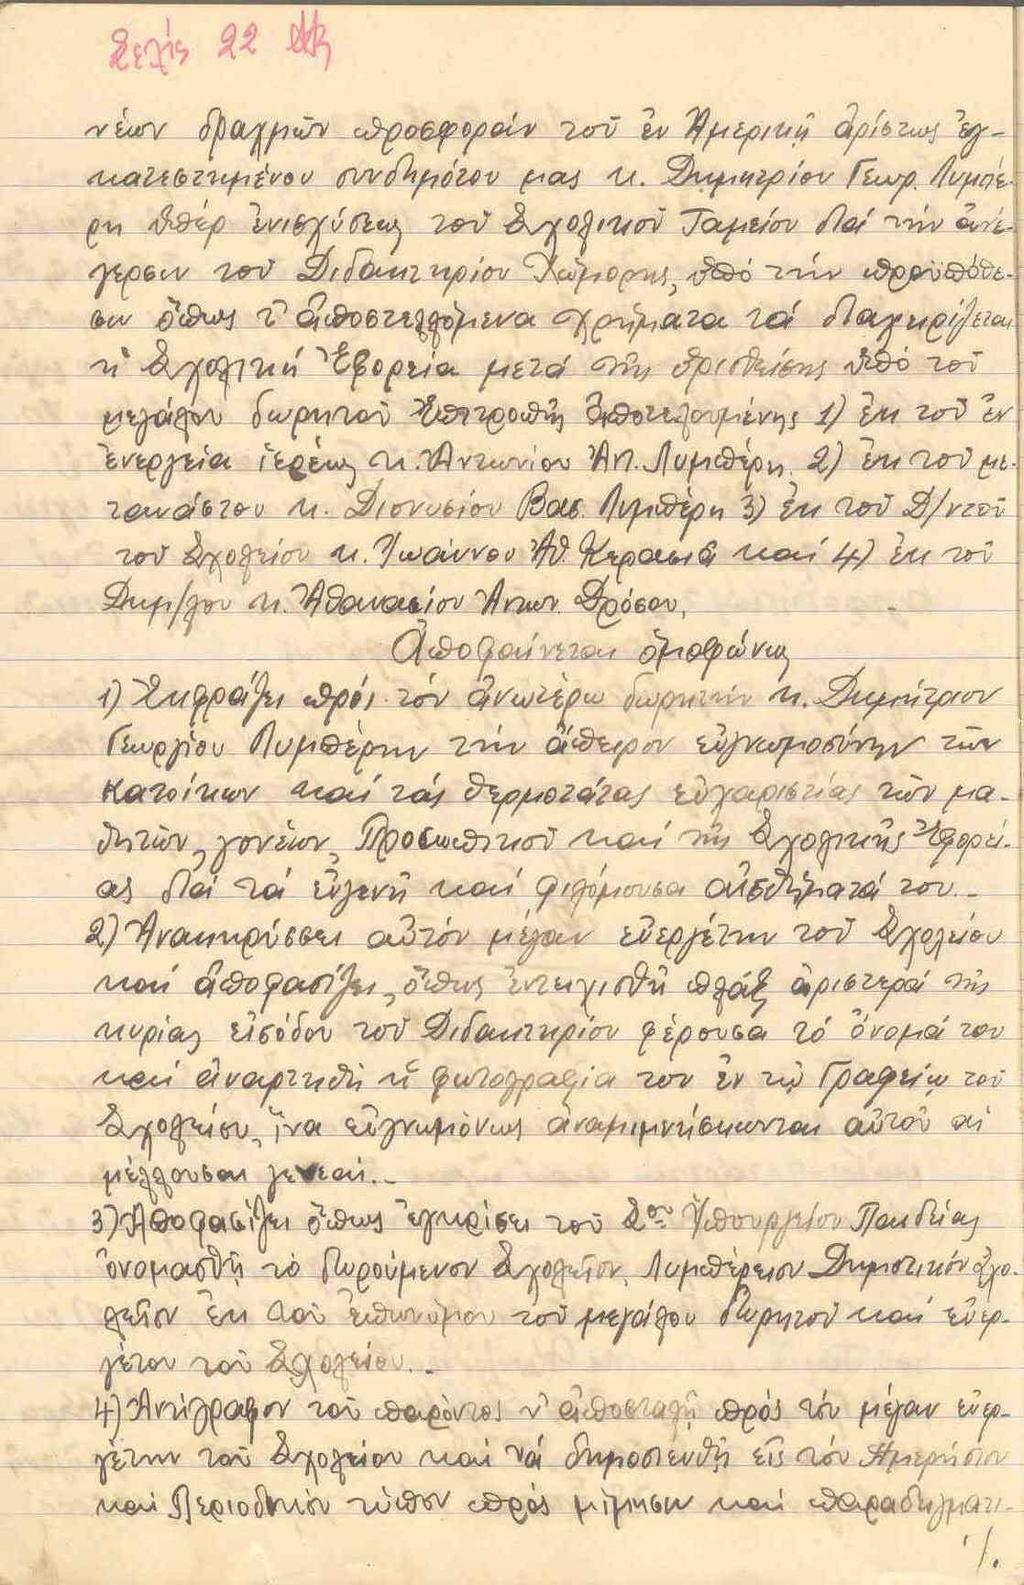 Σελίς 22
νέων δραχμῶν προσφοράν τοῦ ἐν Ἀμερικῇ ἀρίστως ἐγ-
κατεστημένου συνδημότου μας κ. Δημητρίου Γεωρ. Λυμπέ-
ρη ὑπέρ ἐνισχύσεως τοῦ Σχολικοῦ Ταμείου διά τήν ἀνέ-
γερσιν τοῦ Διδακτηρίου Χώμορης, ὑπό τήν προϋπόθε-
σιν ὅπως τ' ἀποστελλόμενα χρήματα τά διαχειρίζεται
ἡ Σχολική Ἐφορεία μετά τῆς ὁρισθείσης ὑπό τοῦ
μεγάλου δωρητοῦ Ἐπιτροπῆς ἀποτελουμένης 1) ἐκ τοῦ ἐν
ἐνεργεία ἱερέως κ. Ἀντωνίου Ἀπ. Λυμπέρη 2) ἐκ τοῦ με-
τανάστου κ. Διονυσίου Βασ. Λυμπέρη 3) ἐκ τοῦ Δ/ντοῦ
τοῦ Σχολείου κ. Ἰωάννου Ἀθ. Κερασιᾶ καί 4) ἐκ τοῦ
Δημ/λου κ. Ἀθανασίου Ἀντων. Δρόσου,
Ἀποφαίνεται ὁμοφώνως
1) Ἐκφράζει πρός τόν ἀνωτέρω δωρητήν κ. Δημήτριον
Γεωργίου Λυμπέρην τήν ἄπειρον εὐγνωμοσύνην τῶν
κατοίκων καί τάς θερμοτάτας εὐχαριστίας τῶν μα-
θητῶν, γονέων, Προσωπικοῦ καί τῆς Σχολικῆς Ἐφορεί-
ας διά τά εὐγενῆ καί φιλόμουσα αἰσθήματά του.-
2) Ἀνακηρύσσει αὐτόν μέγαν εὐεργέτην τοῦ Σχολείου
καί ἀποφασίζει, ὅπως ἐντειχισθῆ πλάξ ἀριστερά τῆς
κυρίας εἰσόδου τοῦ Διδακτηρίου φέρουσα τό ὄνομά του
καί ἀναρτηθῆ ἡ φωτογραφία του ἐν τῷ Γραφείῳ τοῦ
Σχολείου, ἵνα εὐγνωμόνως ἀναμιμνήσκωνται αὐτοῦ αἱ
μέλλουσαι γενεαί.-
3) Ἀποφασίζει ὅπως ἐγκρίσει τοῦ Σοῦ Ὑπουργείου Παιδείας
ὀνομασθῆ τό δωρούμενον Σχολεῖον, Λυμπέρειον Δημοτικόν Σχο-
λεῖον ἐκ τοῦ ἐπωνύμου τοῦ μεγάλου δωρητοῦ καί εὐερ-
γέτου τοῦ Σχολείου.-
4) Ἀντίγραφον τοῦ παρόντος ν' ἀποσταλῇ πρός τόν μέγαν εὐερ-
γέτην τοῦ Σχολείου καί νά δημοσιευθῆ εἰς τόν Ἡμερήσιον
καί Περιοδικόν τύπον πρός μίμησιν καί παραδειγματι-
./.